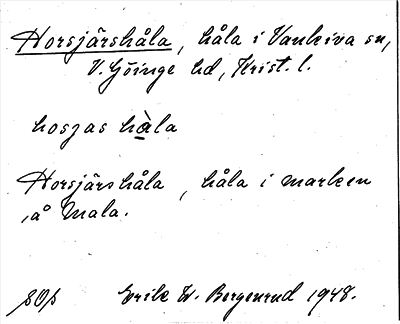 Horsjärshåla, håla i Vankiva sn,
V. Göinge hd, Krist. l.
hosjas hàla
Horsjärshåla, håla i marken
å Mala.
Erik W. Bergenrud 1948.